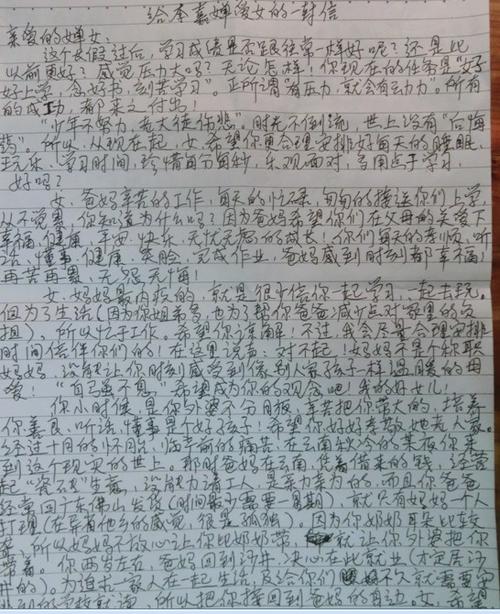 给李嘉婵爱女的一封信
亲爱的婵女:
这个长假过后,学习成绩是否跟往常一样好呢?还是比
以前更好?感觉压力大吗?无论怎样!你现在的任务是"好
好上学,念好书,刻苦学习"。正所谓有压力,就会有动力。所有
的成功,都来之付出!
"少年不努力,老大徒伤悲",时光不倒流,世上没有"后悔
药"。所以,从现在起,女,希望你更合理安排好每天的睡眠、
玩乐、学习时间,珍惜每分每秒,乐观面对,多用点于学习,
好吗?
女,爸妈辛苦的工作,每天的忙碌,匆匆的接送你们上学,
从不说累,你知道为什么吗?因为爸妈希望你们在父母的关爱下
幸福、健康,平安、快乐,无忧无虑的成长!你们每天的亲顺、听
话、懂事、健康、笑脸、完成作业,爸妈感到时刻都幸福!
再苦再累,无怨无悔!
女,妈妈最内疚的,就是很少陪你一起学习,一起去玩。
但为了生意(因为你姐弟多,也为了帮你爸爸减少点对家里的负
担),所以忙于工作。希望你谅解!不过,我会尽量合理安排
时间陪伴你们的!在这里说声:对不起!妈妈不是个称职
妈妈,没能让你时刻感受到像别人家孩子一样温暖的母
爱!"自强不息"希望成为你的观念吧!我的好女儿!
你小时候,是你外婆不分日夜,辛苦把你带大的,培养
你善良、听话、懂事是个好孩子!希望你好好孝敬她老人家。
经过十月的怀胎,临产前的痛苦,在云南秋冷的某夜你来
到这个现实的世上。那时爸妈在云南,凭着借来的钱,经营
起"瓷砖"生意,没能力请工人,是亲力亲为的,而且你爸爸
经常回广东佛山发货(时间最少需要一星期),就只有妈妈一个人
打理(在异省他乡的感觉,很是孤独)。因为你奶奶耳朵比较
聋,所以妈妈不放心让你比奶奶带,就让你外婆把你
带着。你两岁左右,爸妈回到沙井,决心在此就业(才定居沙
井的)。为追求一家人在一起生活,及会你们不久就需要